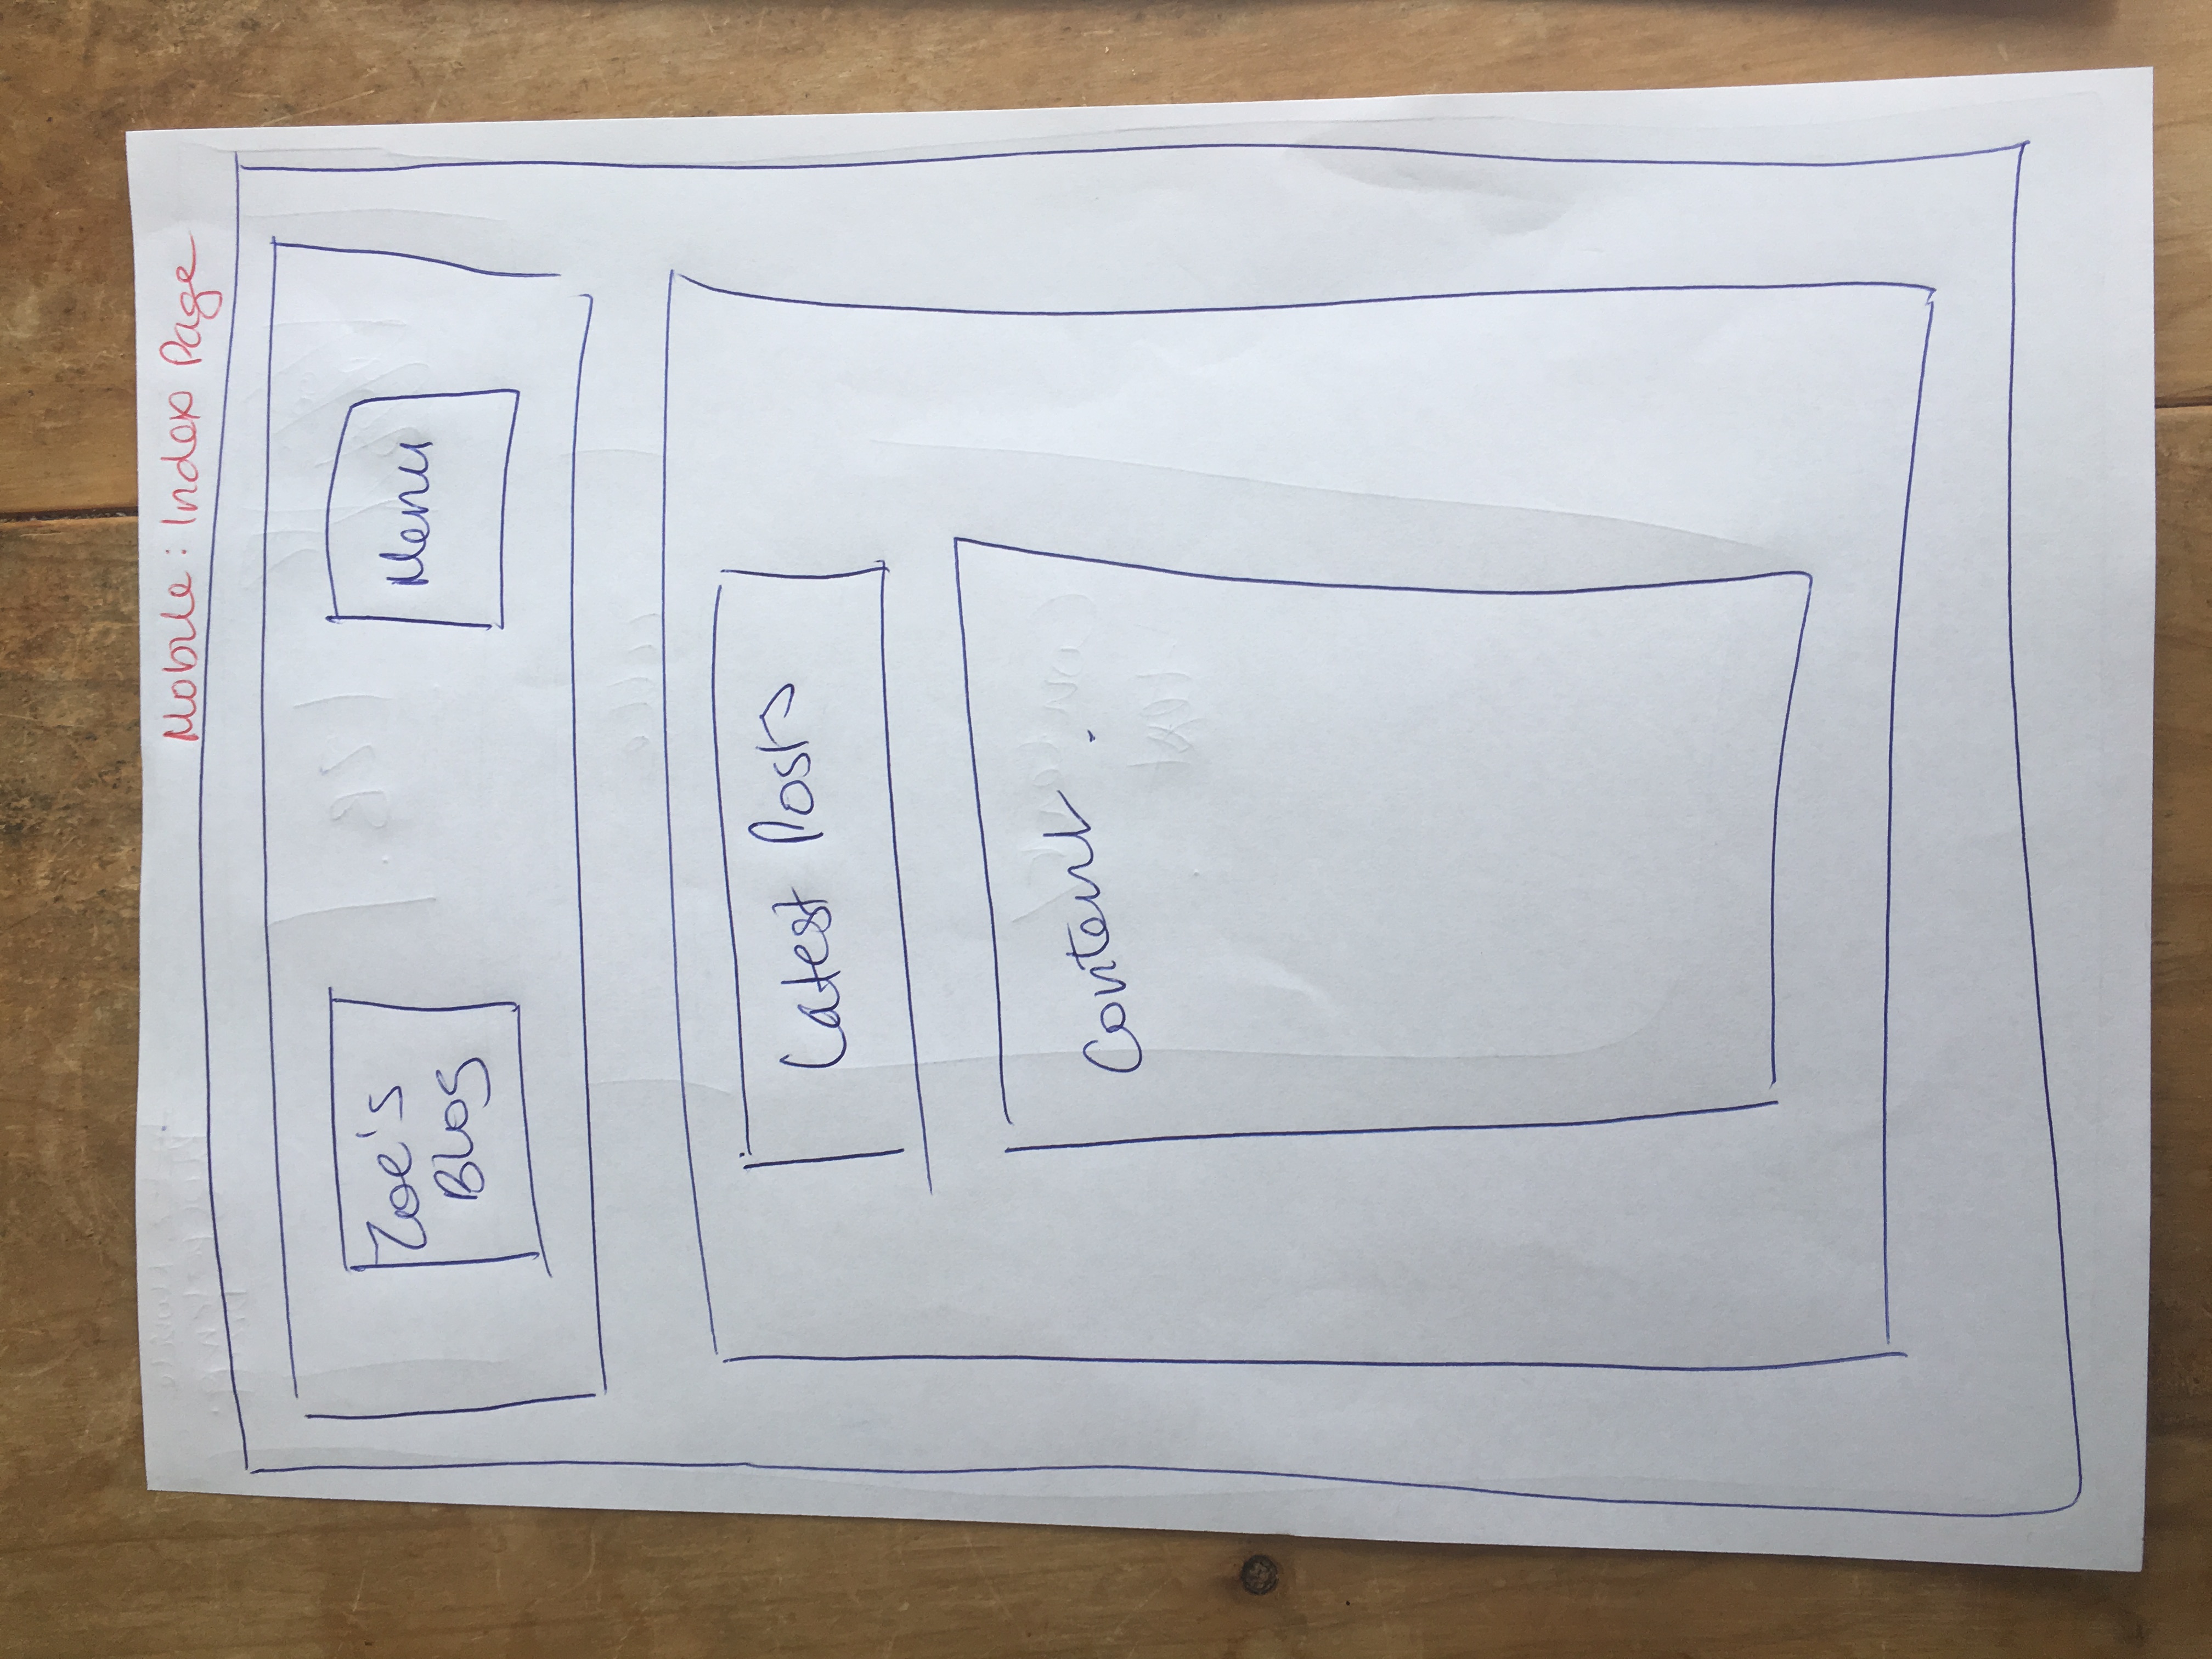 Mobile: Index Page
Zoe's
Blog
Menu
Latest Posts
Content.